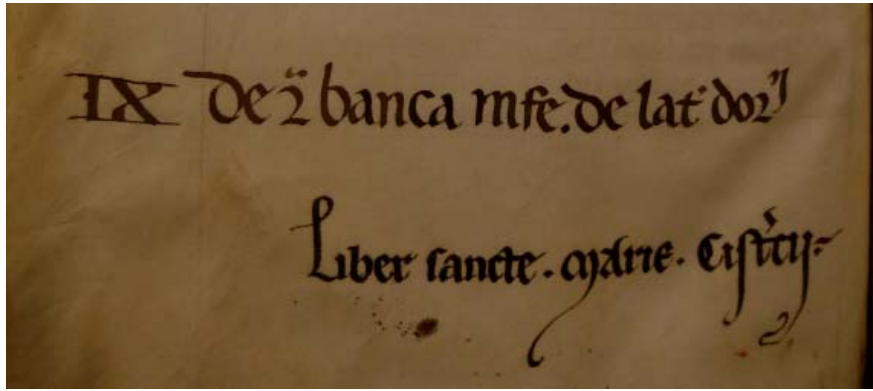 IX de 2ᵃ banca inferiori de lat dor
Liber sancte . marie . Cistercij